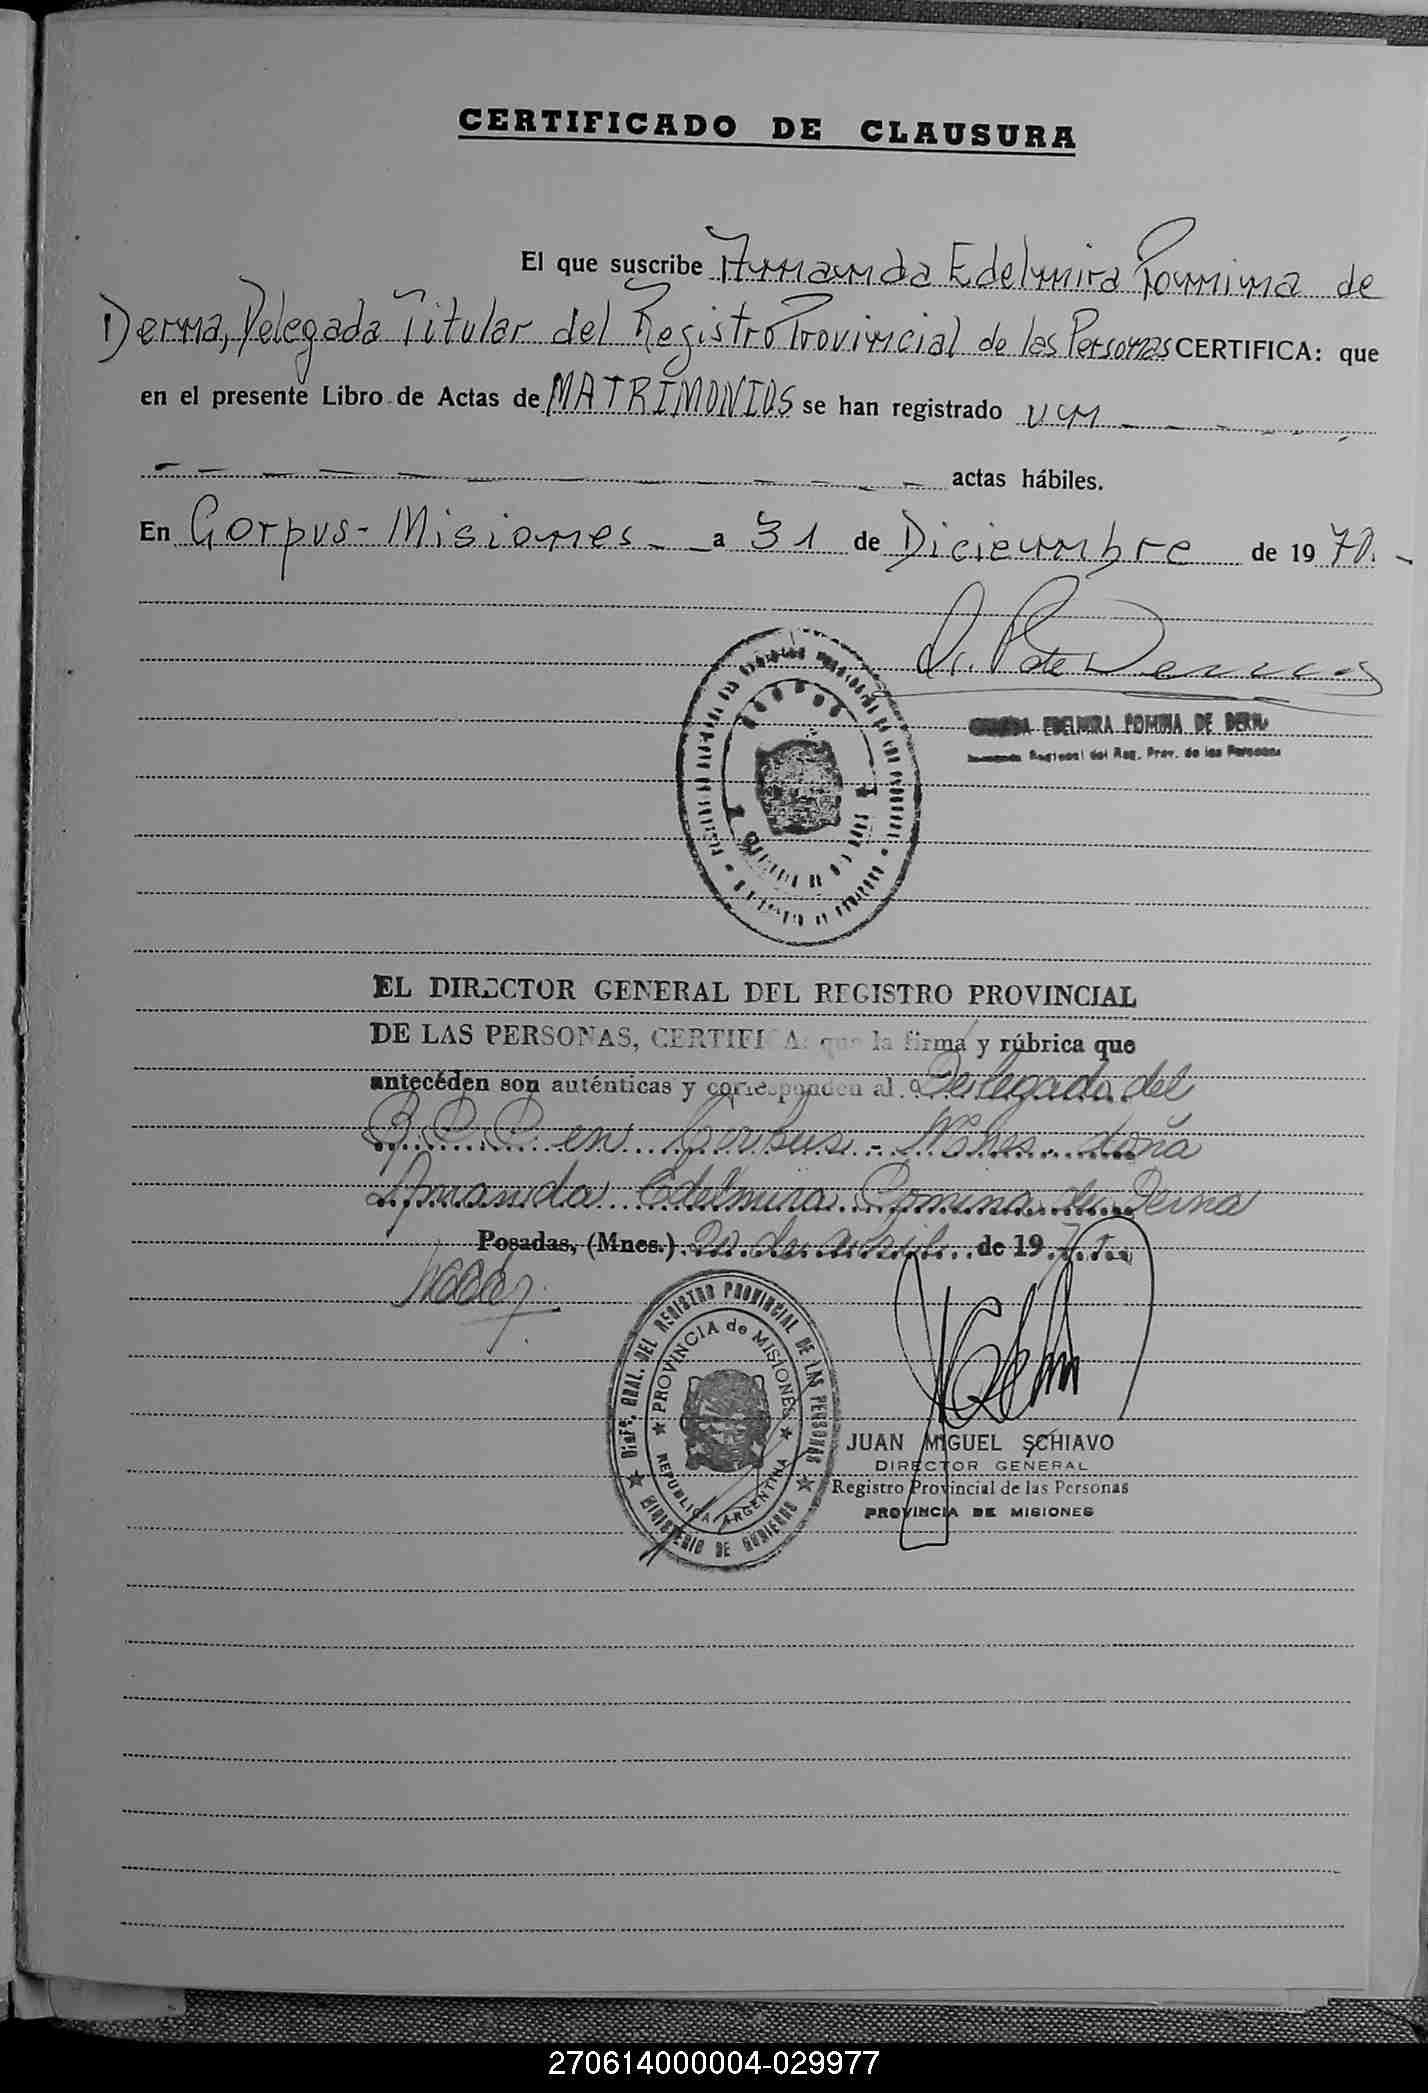 CERTIFICADO DE CLAUSURA
El que suscribe Amanda Edelmira Pomina de
Derna, Delegada Titular del Registro Provincial de las Personas CERTIFICA: que
en el presente Libro de Actas de MATRIMONIOS se han registrado un
actas hábiles.
En Corpus-Misiones a 31 de Diciembre de 1970.-
EDELMIRA POMINA DE DERNA
Regional del Reg. Prov. de las Personas
EL DIRECTOR GENERAL DEL REGISTRO PROVINCIAL
DE LAS PERSONAS, CERTIFICA: que la firma y rúbrica que
antecéden son auténticas y corresponden al a Delegada del
R.P.P. en Corpus - Mnes. doña
Amanda Edelmira Pomina de Derna
Posadas, (Mnes.) 20 de abril de 1971
DIREC. GRAL. DEL REGISTRO PROVINCIAL DE LAS PERSONAS
PROVINCIA de MISIONES
REPUBLICA ARGENTINA
MINISTERIO DE GOBIERNO
JUAN MIGUEL SCHIAVO
DIRECTOR GENERAL
Registro Provincial de las Personas
PROVINCIA DE MISIONES
270614000004-029977